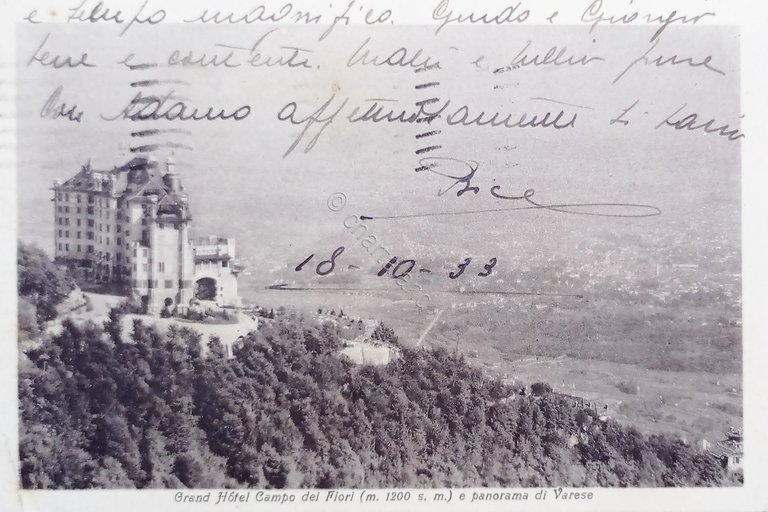 e tempo magnifico. Guido e Giorgio
bene e contenti. e pure
Con Adamo affettuosamente ti
Bice
18-10-33
© charta
Grand Hôtel Campo dei Fiori (m. 1200 s. m.) e panorama di Varese